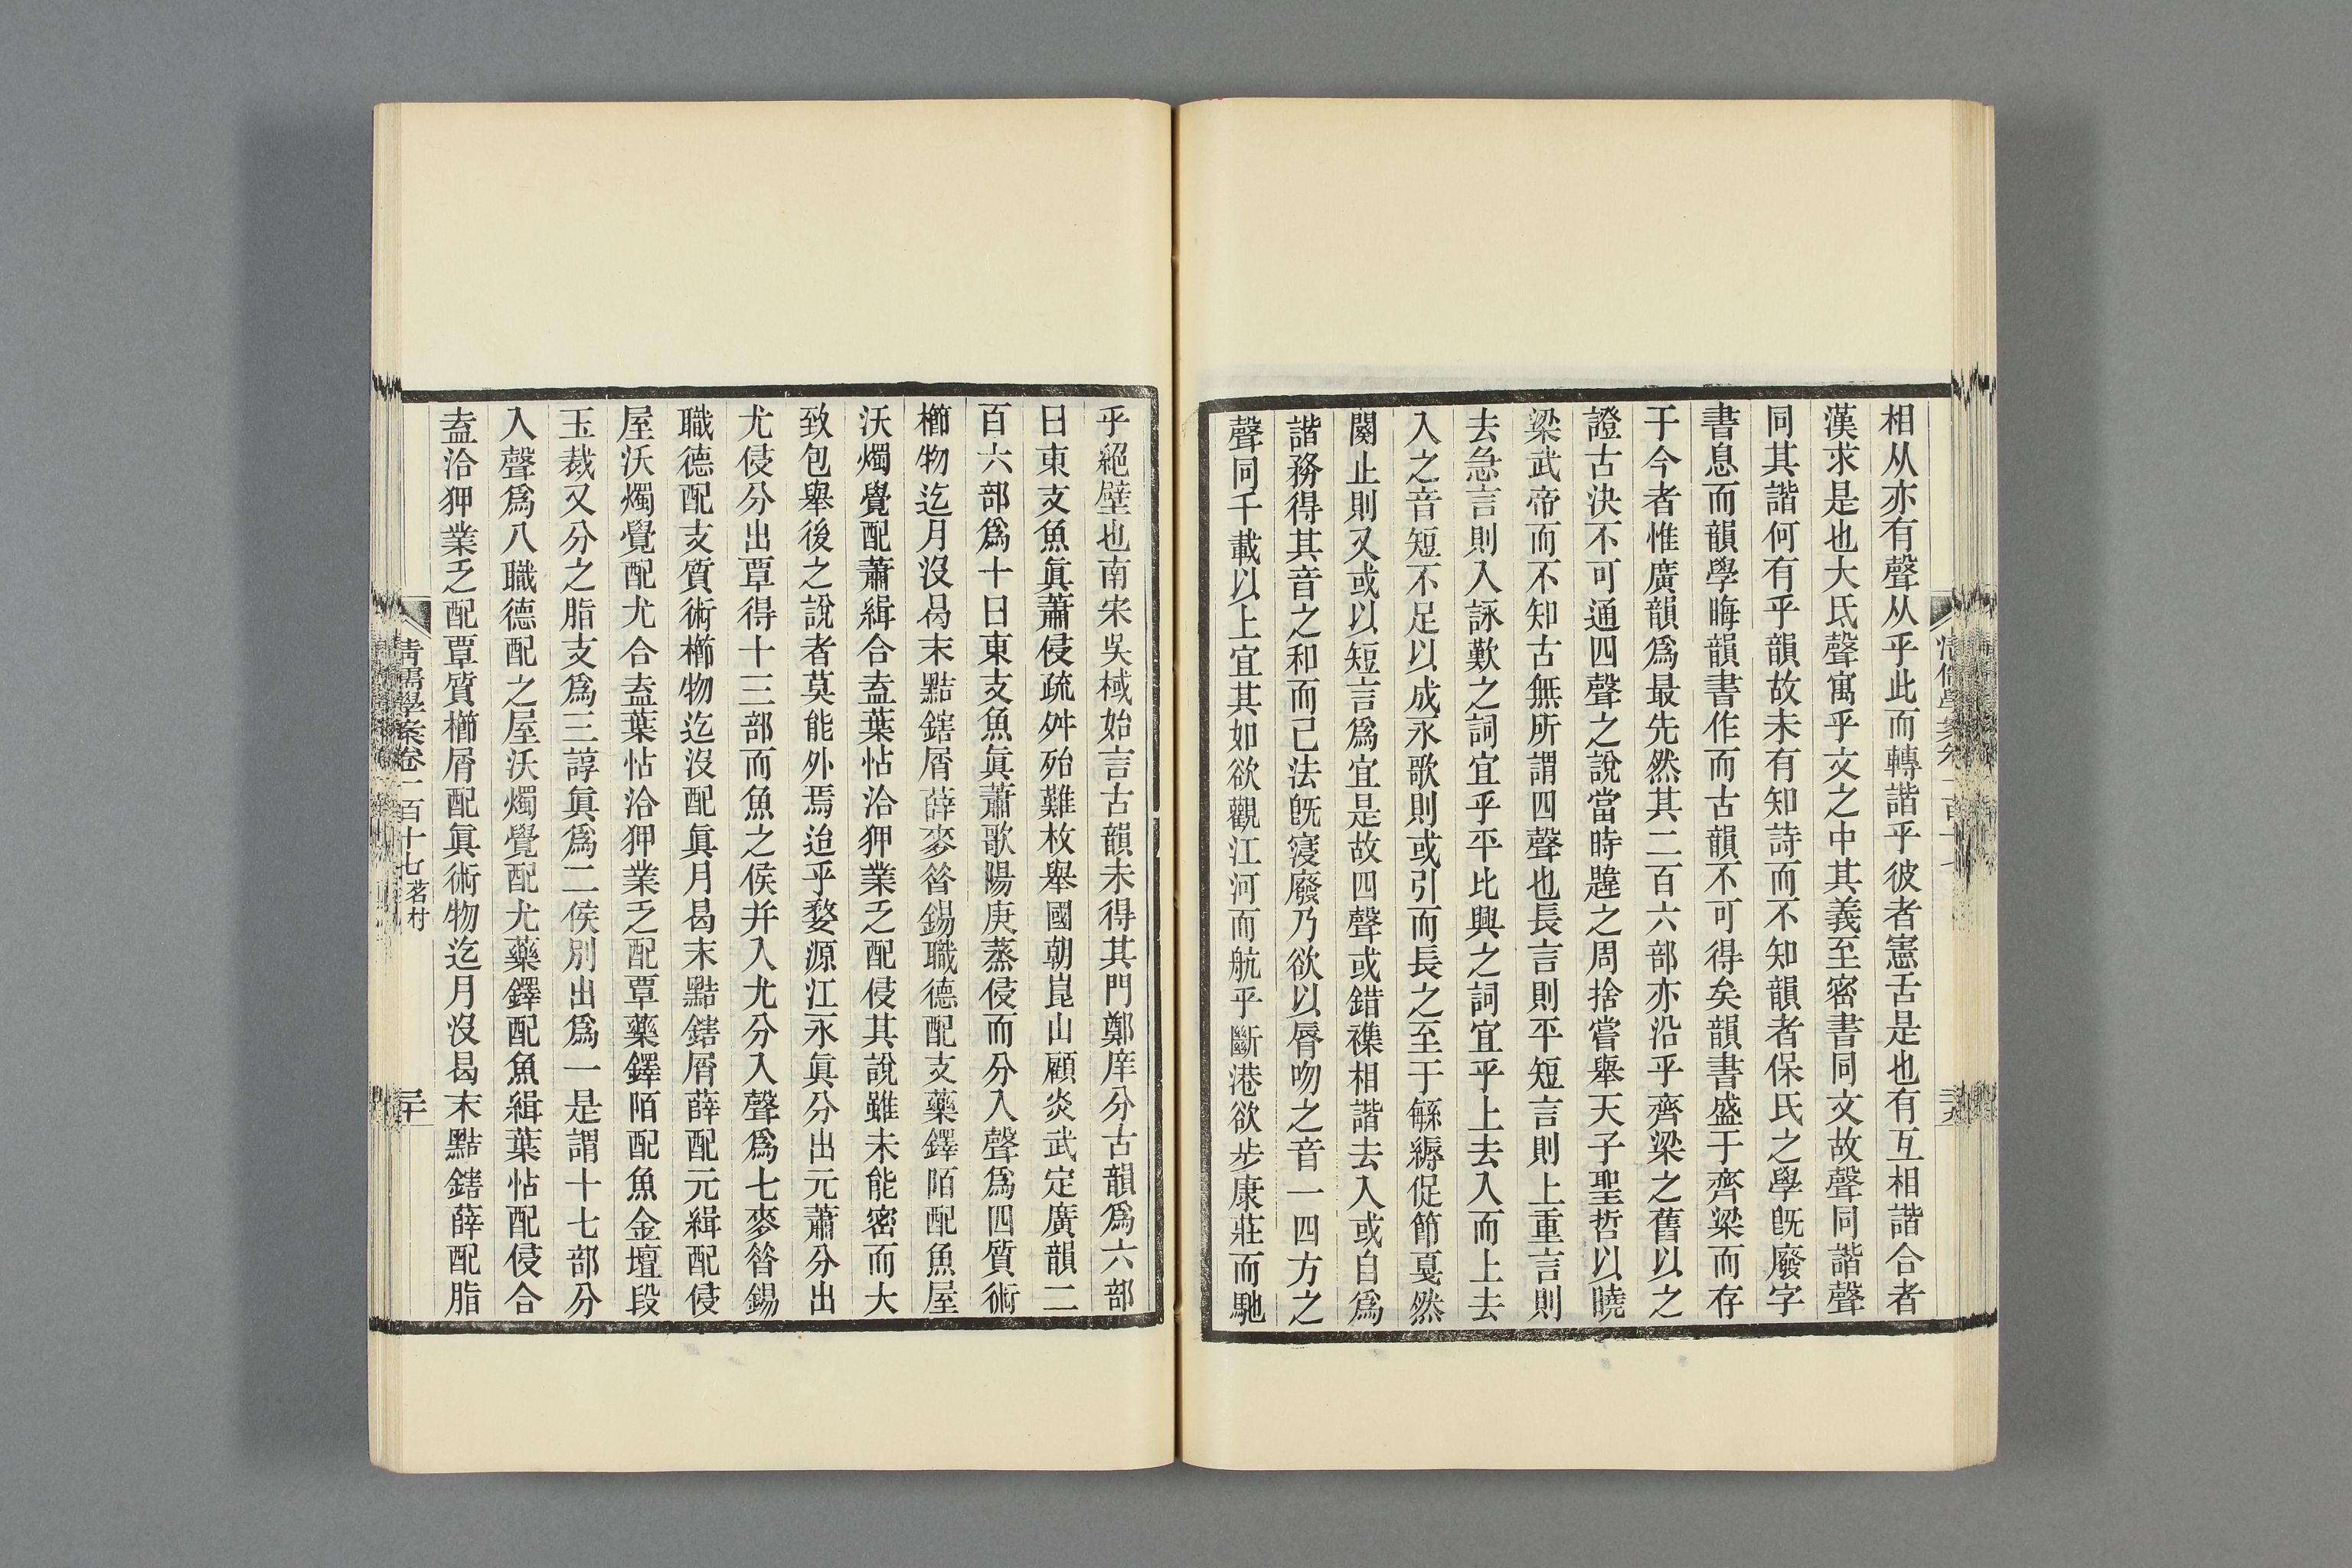 相从亦有聲从乎此而轉諧乎彼者憲舌是也有互相諧合者
漢求是也大氐聲寓乎文之中其義至密書同文故聲同諧聲
同其諧何有乎韻故未有知詩而不知韻者保氏之學旣廢字
書息而韻學晦韻書作而古韻不可得矣韻書盛于齊梁而存
于今者惟廣韻爲最先然其二百六部亦沿乎齊梁之舊以之
證古決不可通四聲之說當時韙之周捨嘗舉天子聖哲以曉
梁武帝而不知古無所謂四聲也長言則平短言則上重言則
去急言則入詠歎之詞宜乎平比興之詞宜乎上去入而上去
入之音短不足以成永歌則或引而長之至于繇縟促節戛然
闋止則又或以短言爲宜是故四聲或錯襍相諧去入或自爲
諧務得其音之和而已法旣寖廢乃欲以脣吻之音一四方之
聲同千載以上宜其如欲觀江河而航乎斷港欲步康莊而馳
乎絕壁也南宋吳棫始言古韻未得其門鄭庠分古韻爲六部
曰東支魚眞蕭侵疏舛殆難枚舉國朝崑山顧炎武定廣韻二
百六部爲十曰東支魚眞蕭歌陽庚蒸侵而分入聲爲四質術
櫛物迄月沒曷末黠鎋屑薛麥昝錫職德配支藥鐸陌配魚屋
沃燭覺配蕭緝合盍葉怗洽狎業乏配侵其說雖未能密而大
致包舉後之說者莫能外焉迨乎婺源江永眞分出元蕭分出
尤侵分出覃得十三部而魚之侯并入尤分入聲爲七麥昝錫
職德配支質術櫛物迄沒配眞月曷末黠鎋屑薛配元緝配侵
屋沃燭覺配尤合盍葉怗洽狎業乏配覃藥鐸陌配魚金壇段
玉裁又分之脂支爲三諄眞爲二侯別出爲一是謂十七部分
入聲爲八職德配之屋沃燭覺配尤藥鐸配魚緝葉怗配侵合
盍洽狎業乏配覃質櫛屑配眞術物迄月沒曷末黠鎋薛配脂
清儒學案卷一百十七 茗村
三十